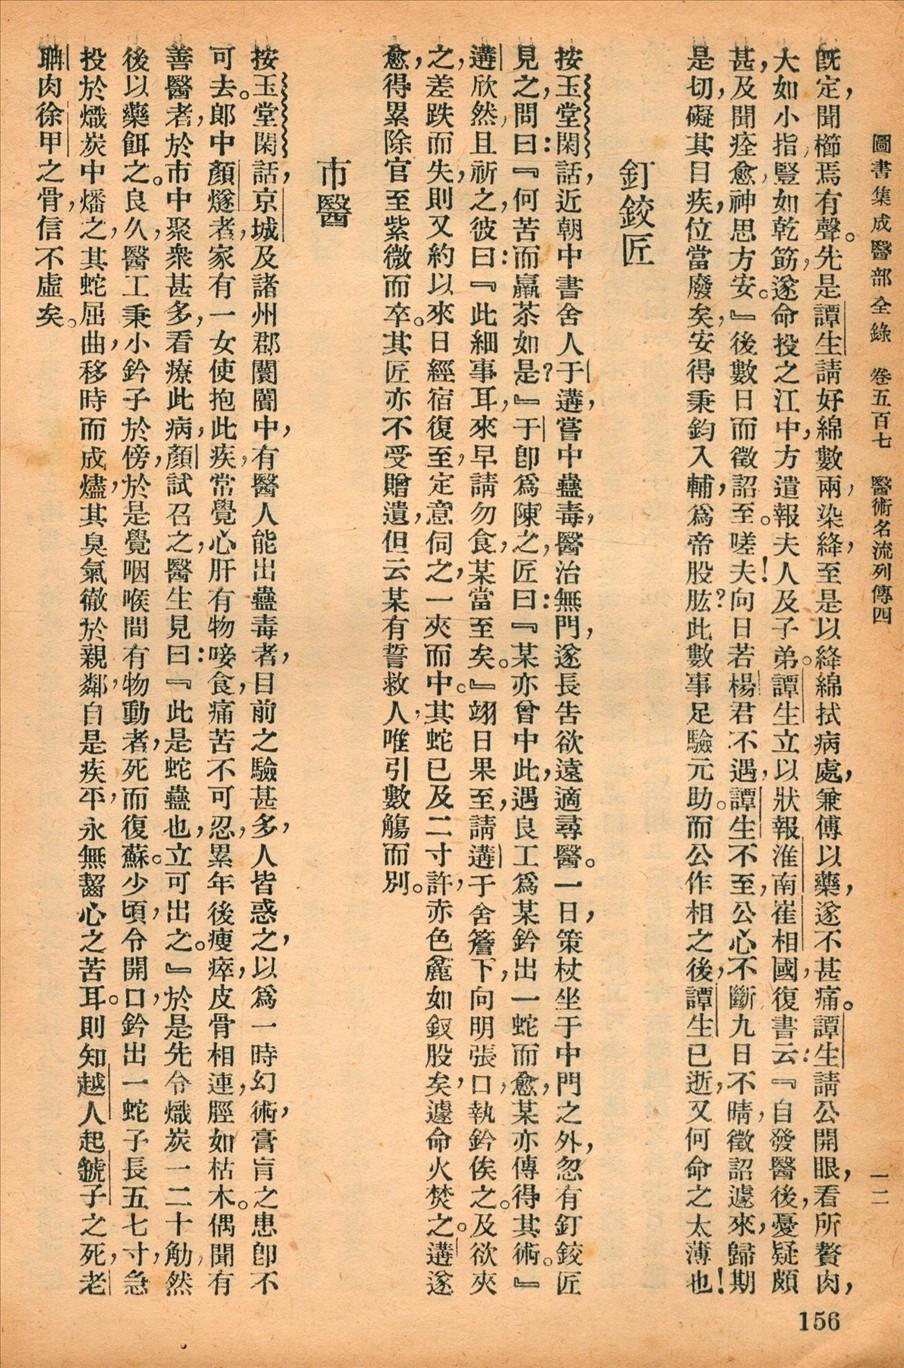 圖書集成醫部全錄　卷五百七　醫術名流列傳四　一二
旣定，聞櫛焉有聲。先是譚生請好綿數兩，染絳，至是以絳綿拭病處，兼傅以藥，遂不甚痛。譚生請公開眼，看所贅肉，
大如小指，豎如乾筋，遂命投之江中，方遣報夫人及子弟。譚生立以狀報淮南，崔相國復書云：『自發醫後，憂疑頗
甚，及聞痊愈，神思方安。』後數日而徵詔至。嗟夫！向日若楊君不遇，譚生不至，公心不斷，九日不晴，徵詔遽來，歸期
是切，礙其目疾，位當廢矣，安得秉鈞入輔，爲帝股肱？此數事足驗元助。而公作相之後，譚生已逝，又何命之太薄也！
釘鉸匠
按玉堂閑話，近朝中書舍人于遘，嘗中蠱毒，醫治無門，遂長告欲遠適尋醫。一日，策杖坐于中門之外，忽有釘鉸匠
見之，問曰：『何苦而羸茶如是？』于卽爲陳之，匠曰：『某亦曾中此，遇良工爲某鈐出一蛇而愈，某亦傳得其術。』
遘欣然，且祈之，彼曰：『此細事耳，來早請勿食，某當至矣。』翊日果至，請遘于舍簷下，向明張口，執鈐俟之。及欲夾
之，差跌而失，則又約以來日。經宿復至，定意伺之，一夾而中。其蛇已及二寸許，赤色，麄如釵股矣，遽命火焚之。遘遂
愈，得累除官至紫微而卒。其匠亦不受贈遺，但云某有誓救人，唯引數觴而別。
市醫
按玉堂閑話，京城及諸州郡闤闠中，有醫人能出蠱毒者，目前之驗甚多，人皆惑之，以爲一時幻術，膏肓之患卽不
可去。郎中顏燧者，家有一女使抱此疾，常覺心肝有物唼食，痛苦不可忍，累年後瘦瘁，皮骨相連，脛如枯木。偶聞有
善醫者，於市中聚衆甚多，看療此病，顏試召之，醫生見曰：『此是蛇蠱也，立可出之。』於是先令熾炭一二十觔，然
後以藥餌之。良久，醫工秉小鈐子於傍，於是覺咽喉間有物動者，死而復蘇。少頃，令開口，鈐出一蛇子長五七寸，急
投於熾炭中燔之，其蛇屈曲，移時而成燼，其臭氣徹於親鄰，自是疾平，永無齧心之苦耳。則知越人起虢子之死，老
聃肉徐甲之骨，信不虛矣。
156